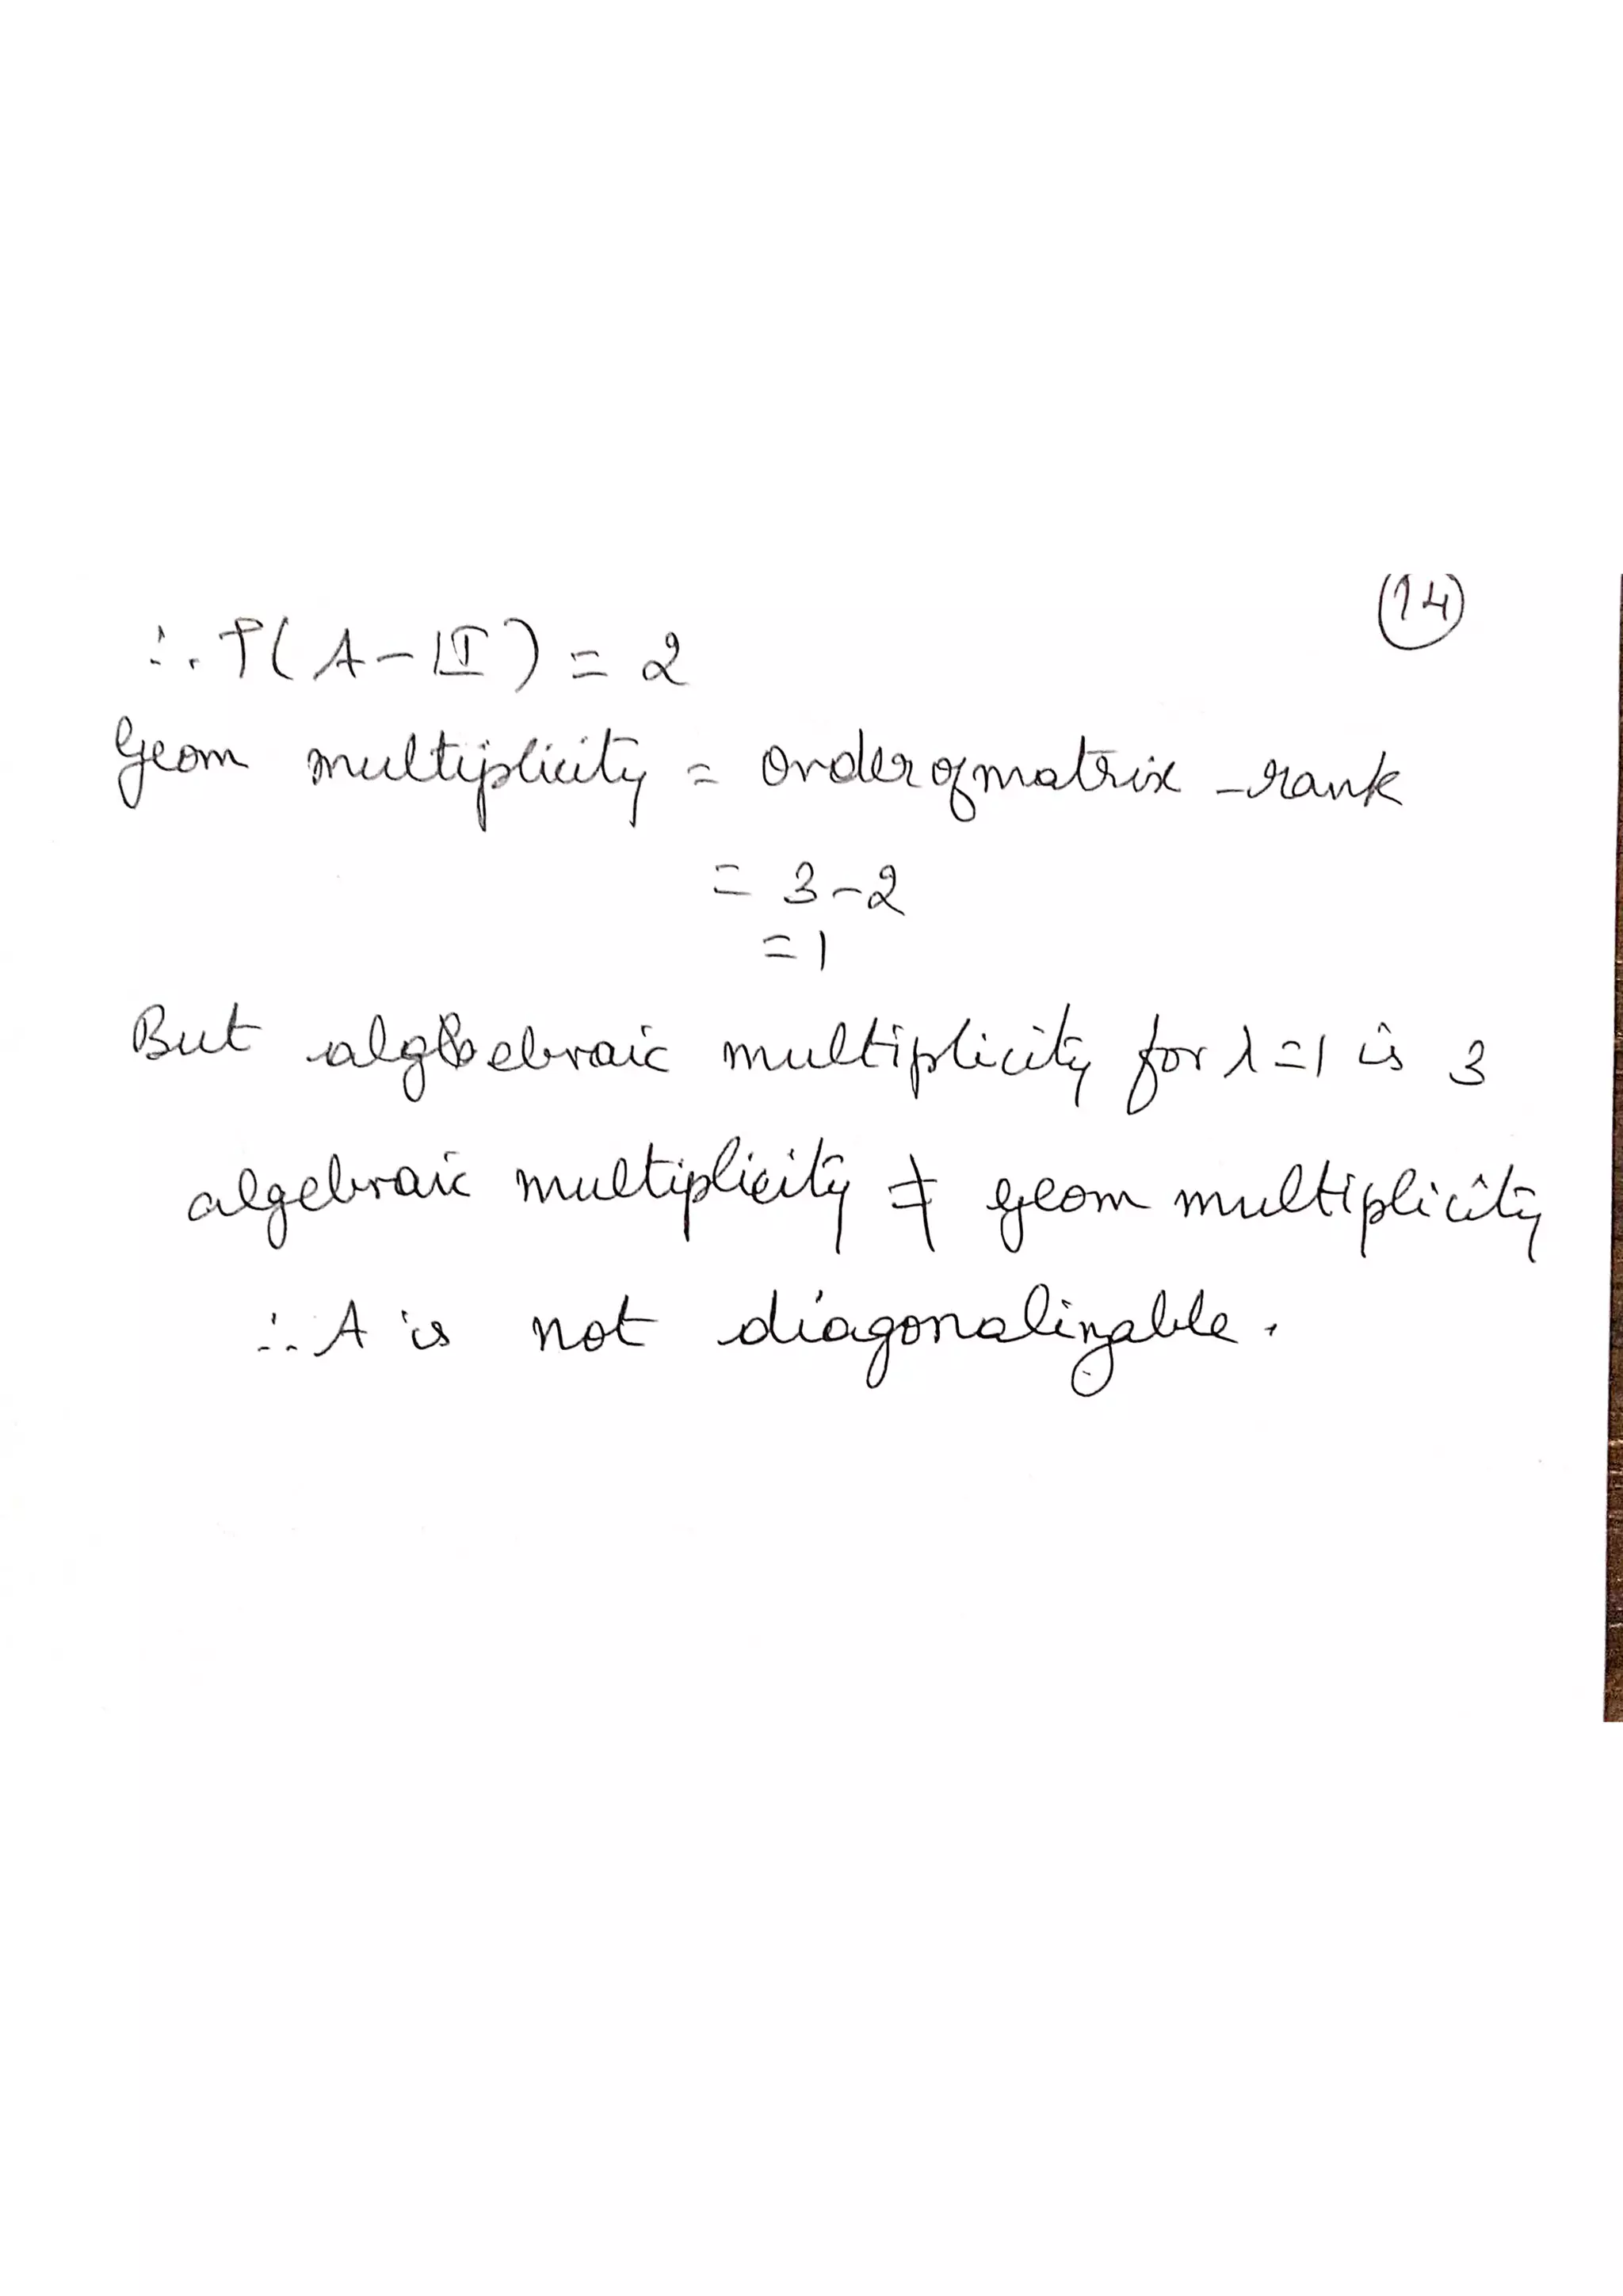 14
∴ ρ(A-1I) = 2
Geom multiplicity = order of matrix - rank
= 3-2
= 1
But algebraic multiplicity for λ=1 is 3
algebraic multiplicity ≠ geom multiplicity
∴ A is not diagonalizable.